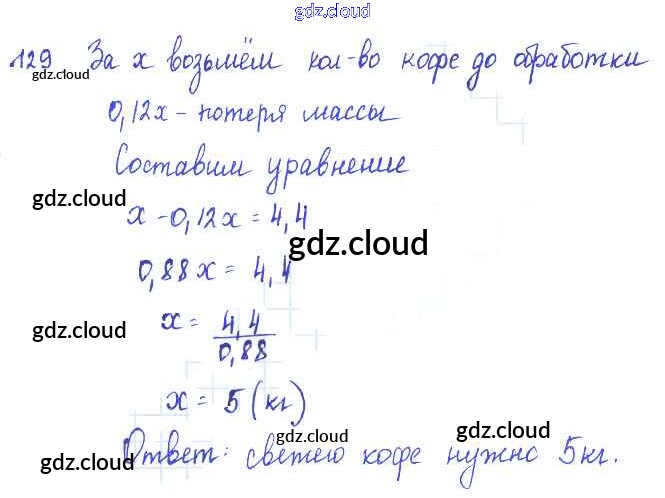 gdz.cloud
129 За x возьмём кол-во кофе до обработки
gdz.cloud
0,12x - потеря массы
Составим уравнение
gdz.cloud
x - 0,12x = 4,4
gdz.cloud
0,88x = 4,4
gdz.cloud
x = 4,4 / 0,88
x = 5 (кг)
gdz.cloud gdz.cloud
Ответ: свежего кофе нужно 5кг.
gdz.cloud